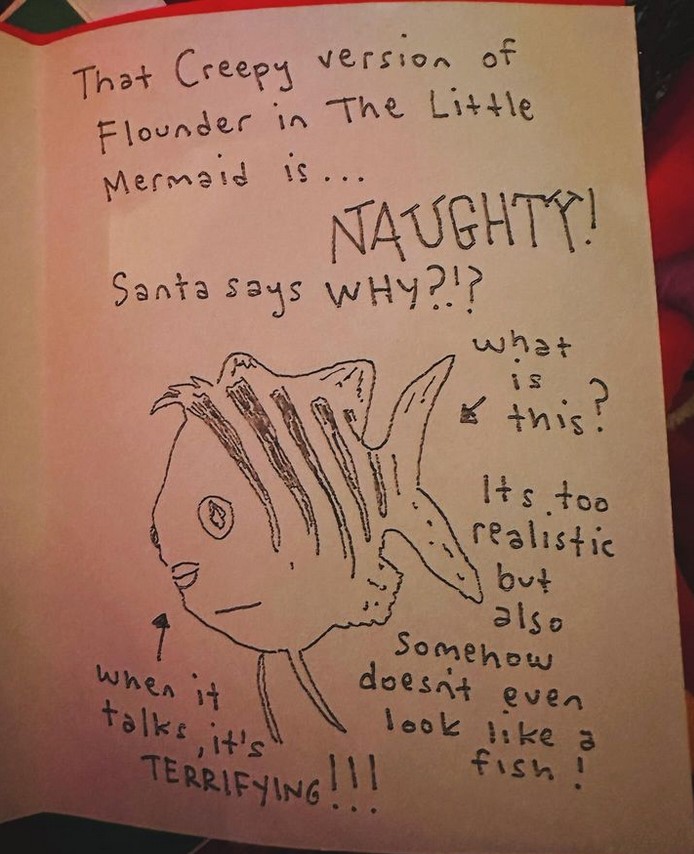 That Creepy version of
Flounder in The Little
Mermaid is...
NAUGHTY!
Santa says WHY?!?
what
is
this?
Its too
realistic
but
also
somehow
doesn't even
look like a
fish!
when it
talks, it's
TERRIFYING!!!